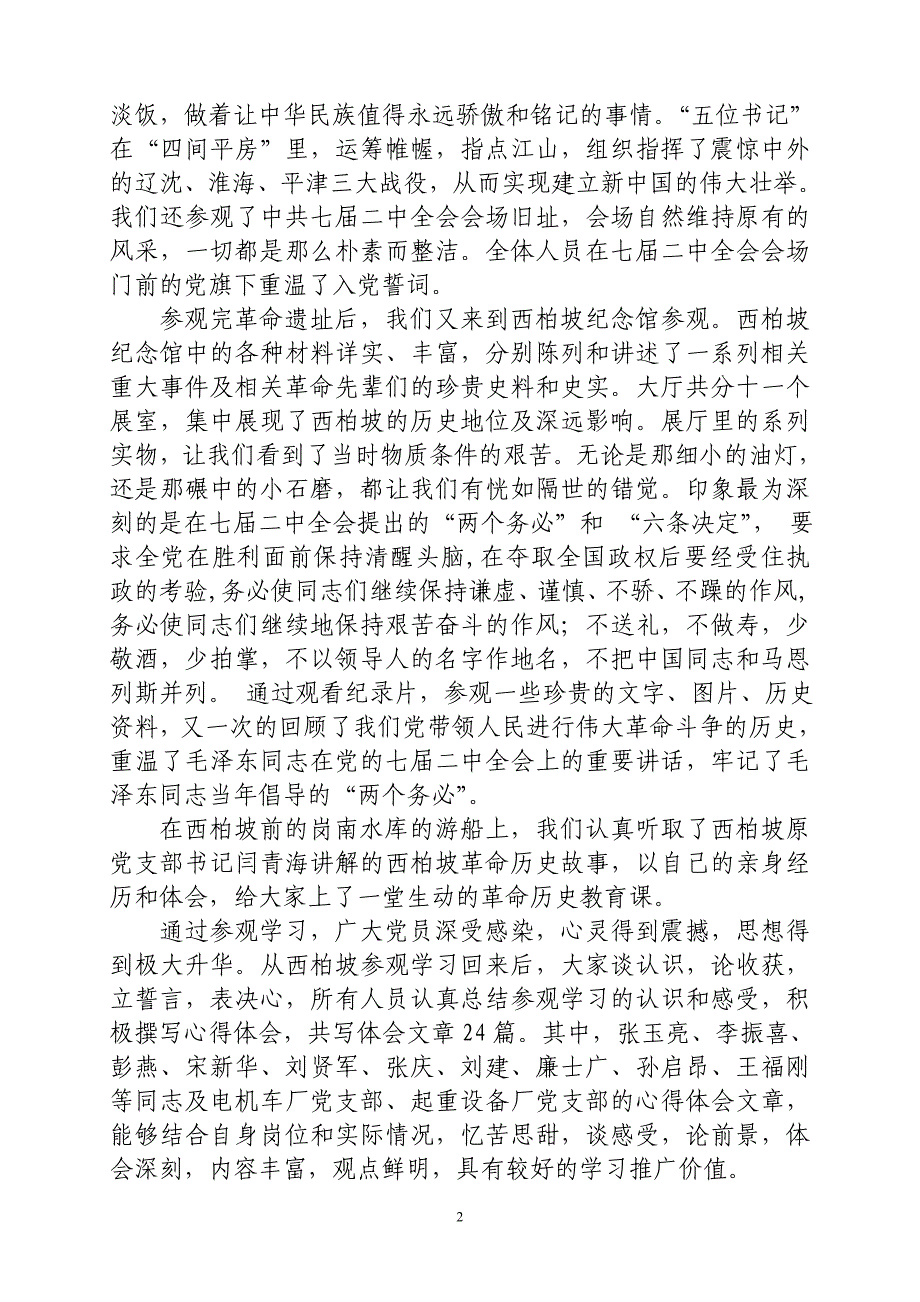 淡饭，做着让中华民族值得永远骄傲和铭记的事情。“五位书记”
在“四间平房”里，运筹帷幄，指点江山，组织指挥了震惊中外
的辽沈、淮海、平津三大战役，从而实现建立新中国的伟大壮举。
我们还参观了中共七届二中全会会场旧址，会场自然维持原有的
风采，一切都是那么朴素而整洁。全体人员在七届二中全会会场
门前的党旗下重温了入党誓词。
参观完革命遗址后，我们又来到西柏坡纪念馆参观。西柏坡
纪念馆中的各种材料详实、丰富，分别陈列和讲述了一系列相关
重大事件及相关革命先辈们的珍贵史料和史实。大厅共分十一个
展室，集中展现了西柏坡的历史地位及深远影响。展厅里的系列
实物，让我们看到了当时物质条件的艰苦。无论是那细小的油灯，
还是那碾中的小石磨，都让我们有恍如隔世的错觉。印象最为深
刻的是在七届二中全会提出的“两个务必”和 “六条决定”， 要
求全党在胜利面前保持清醒头脑,在夺取全国政权后要经受住执
政的考验,务必使同志们继续保持谦虚、谨慎、不骄、不躁的作风,
务必使同志们继续地保持艰苦奋斗的作风；不送礼，不做寿，少
敬酒，少拍掌，不以领导人的名字作地名，不把中国同志和马恩
列斯并列。 通过观看纪录片，参观一些珍贵的文字、图片、历史
资料，又一次的回顾了我们党带领人民进行伟大革命斗争的历史，
重温了毛泽东同志在党的七届二中全会上的重要讲话，牢记了毛
泽东同志当年倡导的“两个务必”。
在西柏坡前的岗南水库的游船上，我们认真听取了西柏坡原
党支部书记闫青海讲解的西柏坡革命历史故事，以自己的亲身经
历和体会，给大家上了一堂生动的革命历史教育课。
通过参观学习，广大党员深受感染，心灵得到震撼，思想得
到极大升华。从西柏坡参观学习回来后，大家谈认识，论收获，
立誓言，表决心，所有人员认真总结参观学习的认识和感受，积
极撰写心得体会，共写体会文章 24 篇。其中，张玉亮、李振喜、
彭燕、宋新华、刘贤军、张庆、刘建、廉士广、孙启昂、王福刚
等同志及电机车厂党支部、起重设备厂党支部的心得体会文章，
能够结合自身岗位和实际情况，忆苦思甜，谈感受，论前景，体
会深刻，内容丰富，观点鲜明，具有较好的学习推广价值。
2